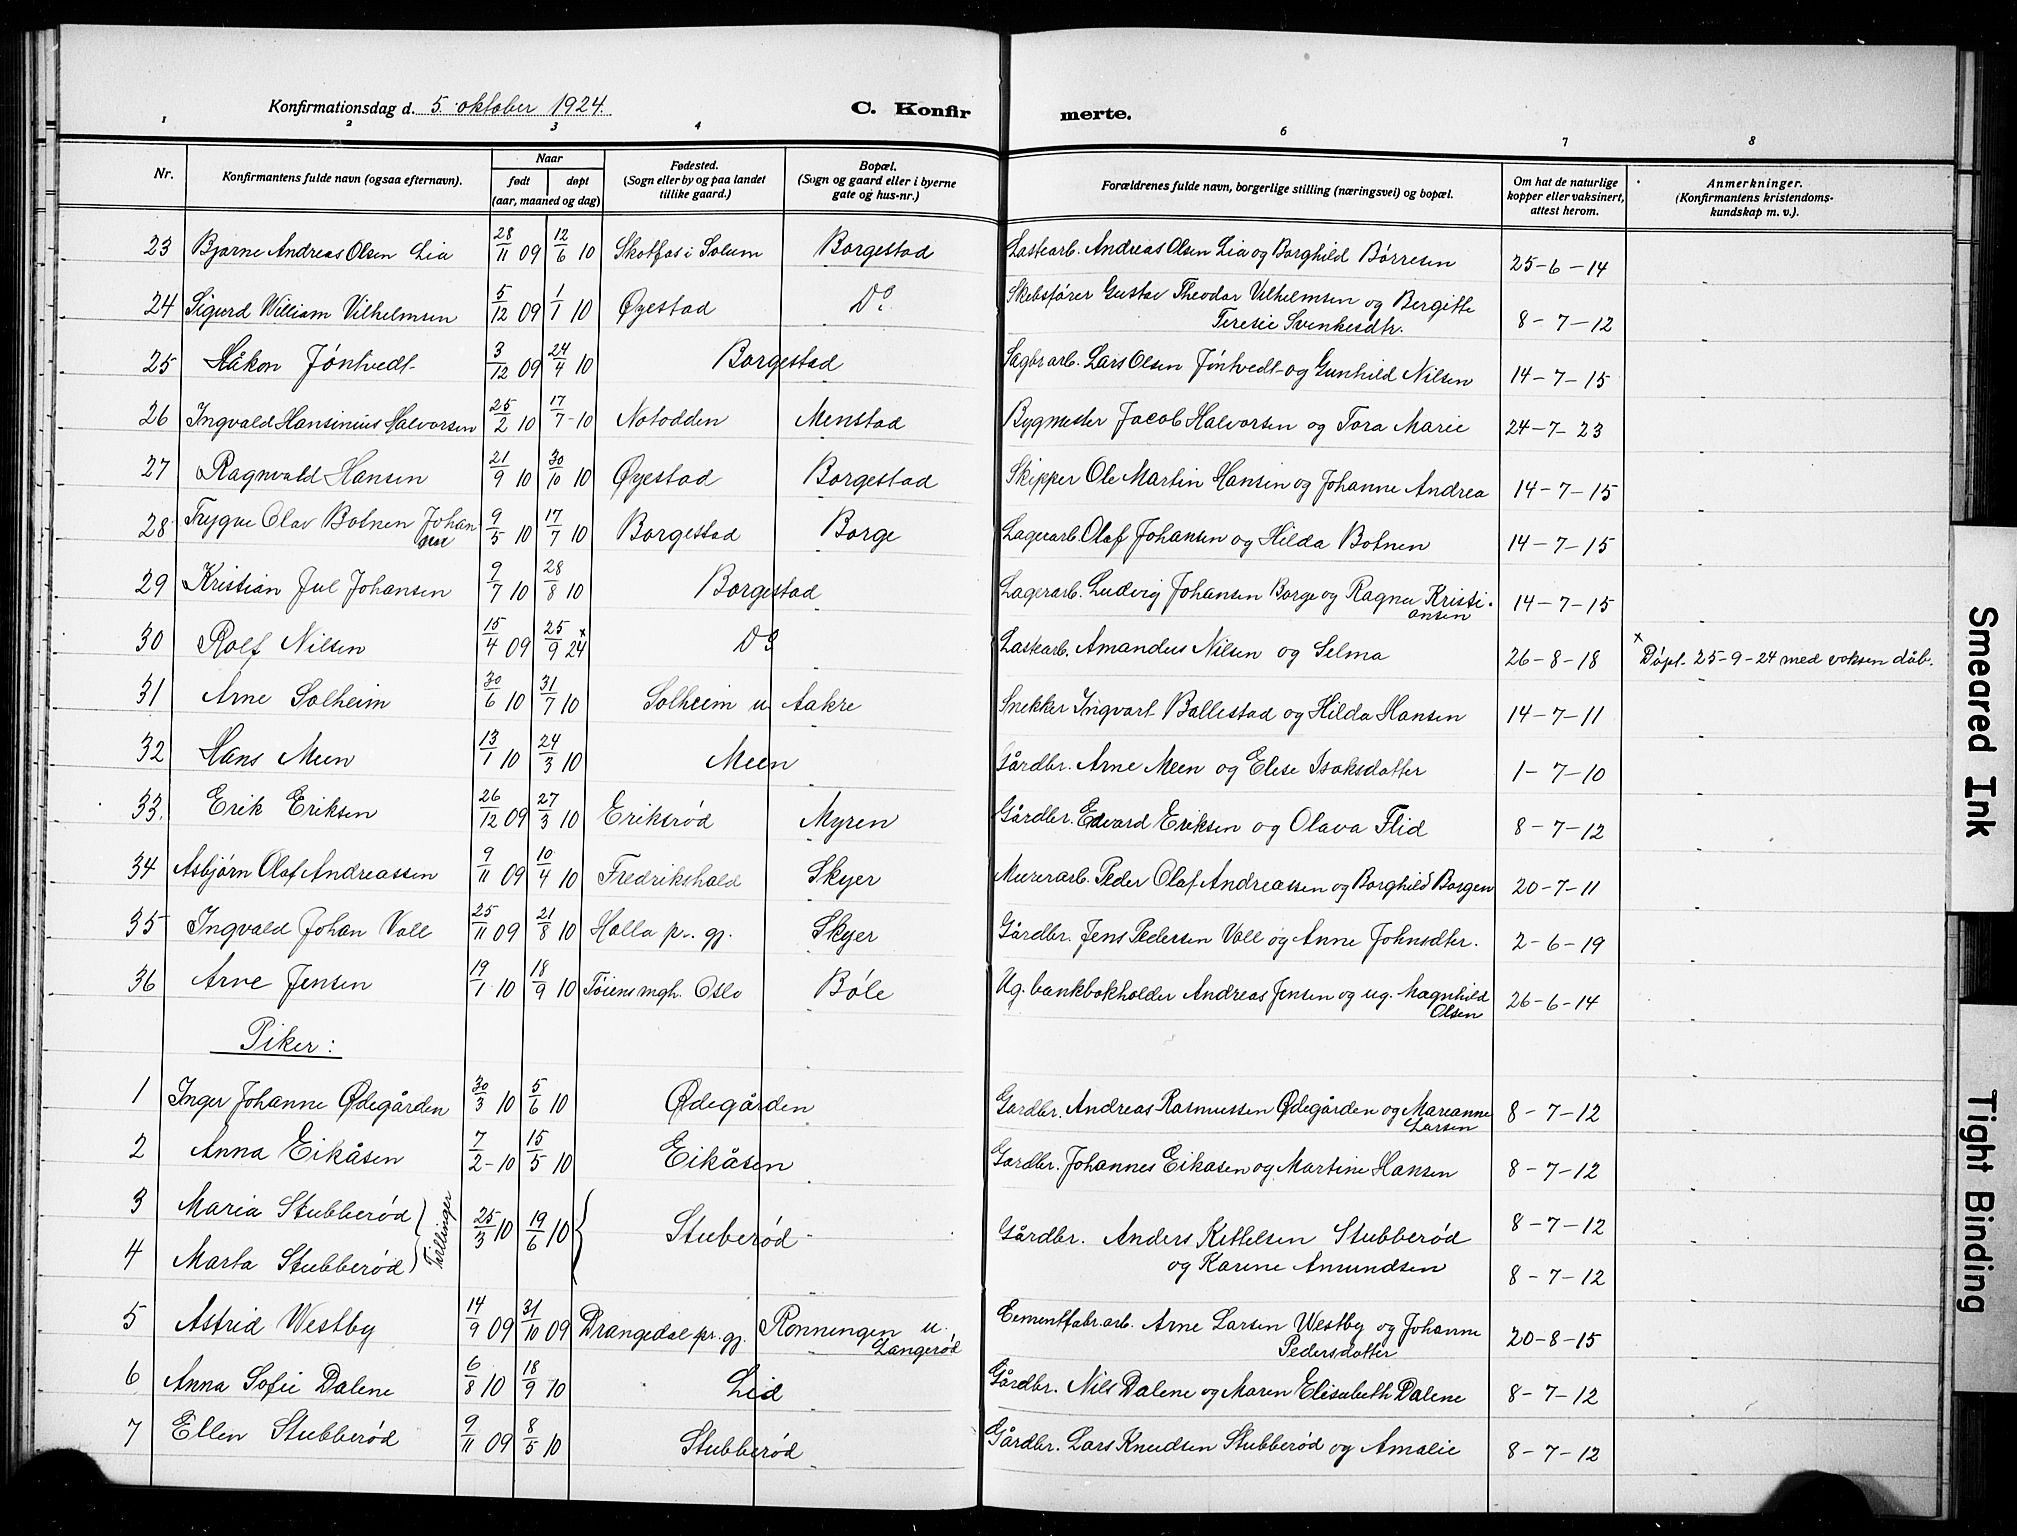 Konfirmationsdag d. 5. oktober 1924. C. Konfirmerte.
1 2 3 4 6 7 8
Nr. Konfirmantens fulde navn (ogsaa efternavn). Naar født døpt (aar, maaned og dag) Fødested. (Sogn eller by og paa landet tillike gaard.) Bopæl. (Sogn og gaard eller i byerne gate og hus-nr.) Forældrenes fulde navn, borgerlige stilling (næringsvei) og bopæl. Om hat de naturlige kopper eller vaksinert, attest herom. Anmerkninger. (Konfirmantens kristendoms-kundskap m. v.).
23 Bjarne Andreas Olsen Lia 28/11 09 12/6 10 Skotfos i Solum Borgestad Lastearb. Andreas Olsen Lia og Borghild Børresen 25-6-14
24 Sigurd William Vilhelmsen 5/12 09 1/1 10 Øyestad Do. Skibsfører Gustav Theodor Vilhelmsen og Bergitte Teresie Svenkesdtr. 8-7-12
25 Håkon Jøntvedt 3/12 09 24/4 10 Borgestad Sagbr. arb. Lars Olsen Jøntvedt og Gunhild Nilsen 14-7-15
26 Ingvald Hansinius Halvorsen 25/2 10 17/7-10 Notodden Menstad Bygmester Jacob Halvorsen og Tora Marie 24-7-23
27 Ragnvald Hansen 21/9 10 30/10 10 Øyestad Borgestad Skipper Ole Martin Hansen og Johanne Andrea 14-7-15
28 Trygve Olav Botnen Johansen 9/5 10 17/7 10 Borgestad Borge Lagerarb. Olaf Johansen og Hilda Botnen 14-7-15
29 Kristian Jul Johansen 9/7 10 28/8 10 Borgestad Lagerarb. Ludvig Johansen Borge og Ragna Kristiansen 14-7-15
30 Rolf Nilsen 15/4 09 25/9 24 x Do Lastearb. Amandus Nilsen og Selma 26-8-18 x Døpt 25-9-24 med voksen dåb.
31 Arne Solheim 30/6 10 31/7 10 Solheim u Aakre Snekker Ingvart Ballestad og Hilda Hansen 14-7-11
32 Hans Meen 13/1 10 24/3 10 Meen Gårdbr. Arne Meen og Elise Isaksdatter 1-7-10
33. Erik Eriksen 26/12 09 27/3 10 Eriksrød Myren Gårdbr. Edvard Eriksen og Olava Flid 8-7-12
34 Asbjørn Olaf Andreassen 9/11 09 10/4 10 Fredrikshald Skyer Murerarb. Peder Olaf Andreassen og Borghild Borgen 20-7-11
35 Ingvald Johan Vall 25/11 09 21/8 10 Holla pr. gj. Skyer Gårdbr. Jens Pedersen Vall og Anne Johnsdter. 2-6-19
36 Arne Jensen 19/1 10 18/9 10 Tøiens mgh. Oslo Bøle Ug. bankbokholder Andreas Jensen og ug. Magnhild Olsen 26-6-14
Piker:
1 Inger Johanne Ødegården 30/3 10 5/6 10 Ødegården Gardbr. Andreas Rasmussen Ødegården og Mareanne Larsen 8-7-12
2 Anna Eikåsen 7/2-10 15/5 10 Eikåsen Gardbr. Johannes Eikasen og Martine Hansen 8-7-12
3 Maria Stubberød 25/3 10 19/6 10 Stuberød Gårdbr. Anders Kittelsen Stubberød 8-7-12
Tvillinger
4 Marta Stubberød og Karine Amundsen 8-7-12
5 Astrid Westby 14/9 09 31/10 09 Drangedal pr. gj. Rønningen u. Langerød Cementfabr. arb. Arne Larsen Westby og Johanne Pedersdatter 20-8-15
6 Anna Sofie Dalene 6/8 10 18/9 10 Lid Gårdbr. Nils Dalene og Maren Elisabeth Dalene 8-7-12
7 Ellen Stubberød 9/11 09 8/5 10 Stubberød Gårdbr. Lars Knudsen Stubberød og Amalie 8-7-12
Smeared Ink
Tight Binding